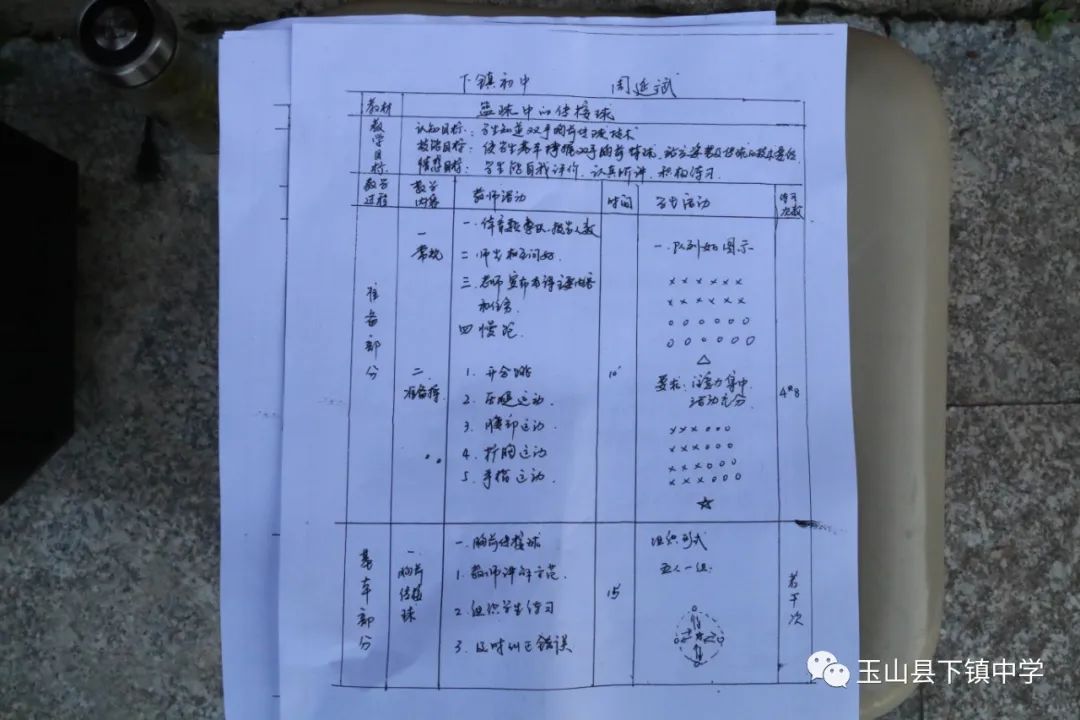 下镇初中 周延斌
教材 篮球中的传接球
教学目标 认知目标：学生知道双手胸前传球技术
技能目标：使学生基本掌握双手胸前传球
情感目标：学生能自我评价，认真听讲，积极练习.
教学过程 教学内容 教师活动 时间 学生活动 练习次数
准备部分
一 常规
一.体育委员整队.报告人数
二.师生相互问好.
三.老师宣布本课主要内容
和任务
四 慢跑.
一.队列如图示
××××××
××××××
○○○○○○
○○○○○○
△
二. 准备操
1. 开合跳
2. 压腿运动.
3. 腰部运动
4. 扩胸运动
5. 手指运动.
10'
要求：注意力集中
活动充分.
4*8
×××○○○
×××○○○
×××○○○
×××○○○
☆
基本部分
一. 胸前传接球
一.胸前传接球
1.教师讲解示范.
2.组织学生练习
3.及时纠正错误
15'
组织形式
五人一组:
若干次
玉山县下镇中学